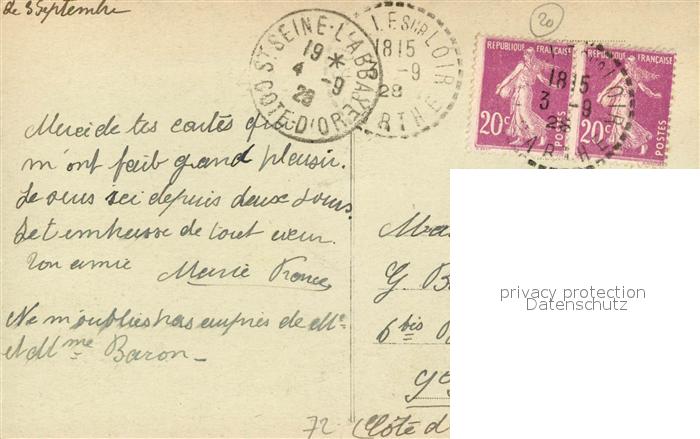 de 3 Septembre
20
ST SEINE-L'ABBAYE
19 *
4 -9
28
COTE-D'OR
LE SUR LOIR
1815
-9
28
RTHE
REPUBLIQUE FRANÇAISE
20c
POSTES
REPUBLIQUE FRANÇAISE
20c
POSTES
1815
3 -9
28
Merci de tes cartes qui
m'ont fait grand plaisir.
Je suis ici depuis deux jours.
Je t'embrasse de tout cœur.
Ton amie Marie France
Ne m'oublies pas auprès de Mr
et Mme Baron_
G B
6 bis
(Côte d
72
privacy protection
Datenschutz